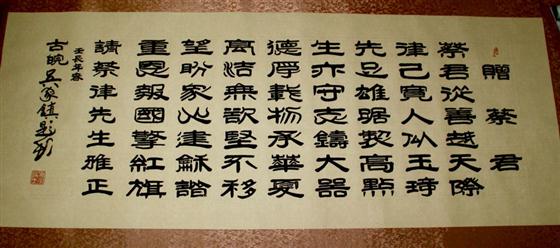 贈蔡君
蔡君從善越天際
律己寬人似玉琦
先足雄踞製高點
生亦守克鑄大器
德厚載物承華夏
高洁無欲堅不移
望盼家业建龢諧
重恩報國擎紅旗
請蔡律先生雅正
壬辰年春
古皖吳家鎮題